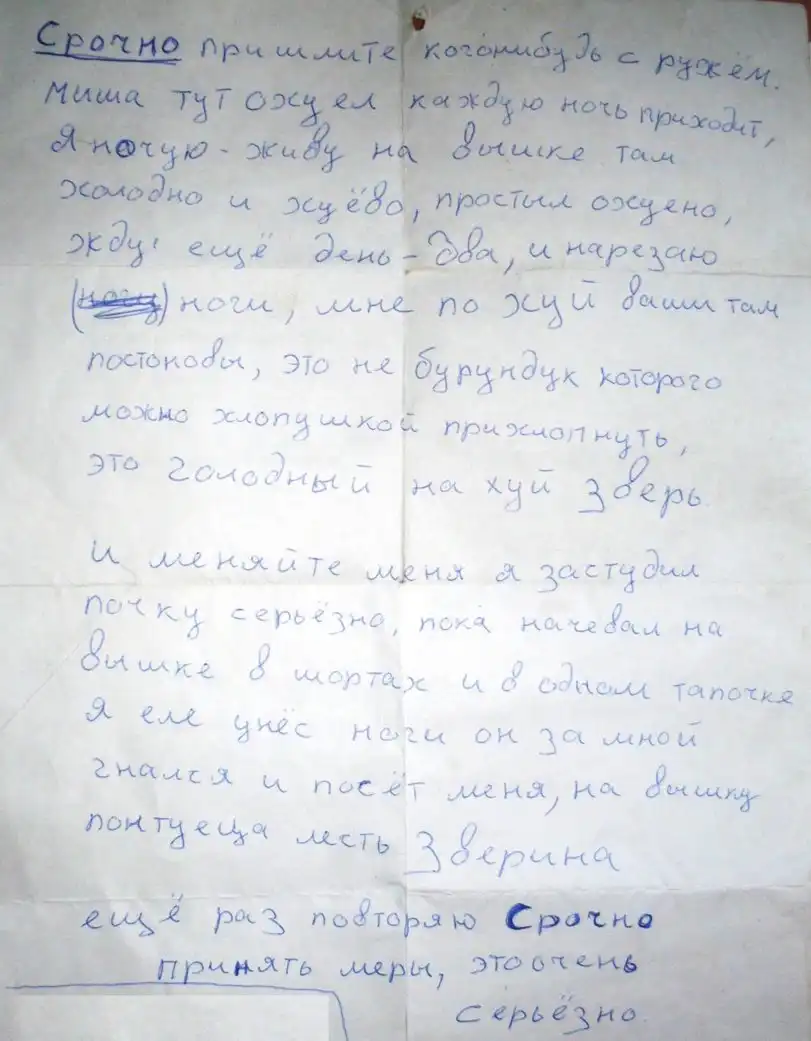 Срочно пришлите когонибудь с ружём.
миша тут охуел каждую ночь приходит,
я ночую - живу на вышке там
холодно и хуёво, простыл охуено,
жду ещё день - два, и нарезаю
ноги, мне по хуй ваши там
постоновы, это не бурундук которого
можно хлопушкой прихлопнуть,
это голодный на хуй зверь
и меняйте меня я застудил
почку серьёзно, пока начевал на
вышке в шортах и в одном тапочке
я еле унёс ноги он за мной
гнался и посёт меня, на вышку
понтуеца лесть зверина
ещё раз повторяю Срочно
принять меры, это очень
серьёзно.